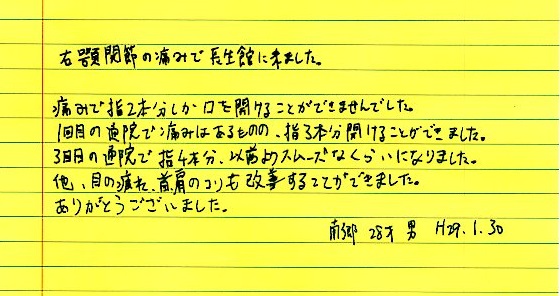 右顎関節の痛みで長生館に来ました。
痛みで指2本分しか口を開けることができませんでした。
1回目の通院で痛みはあるものの、指3本分開けることができました。
3回目の通院で指4本分、以前よりスムーズなくらいになりました。
他、目の疲れ、首肩のコリも改善することができました。
ありがとうございました。
南郷 28才 男 H29.1.30